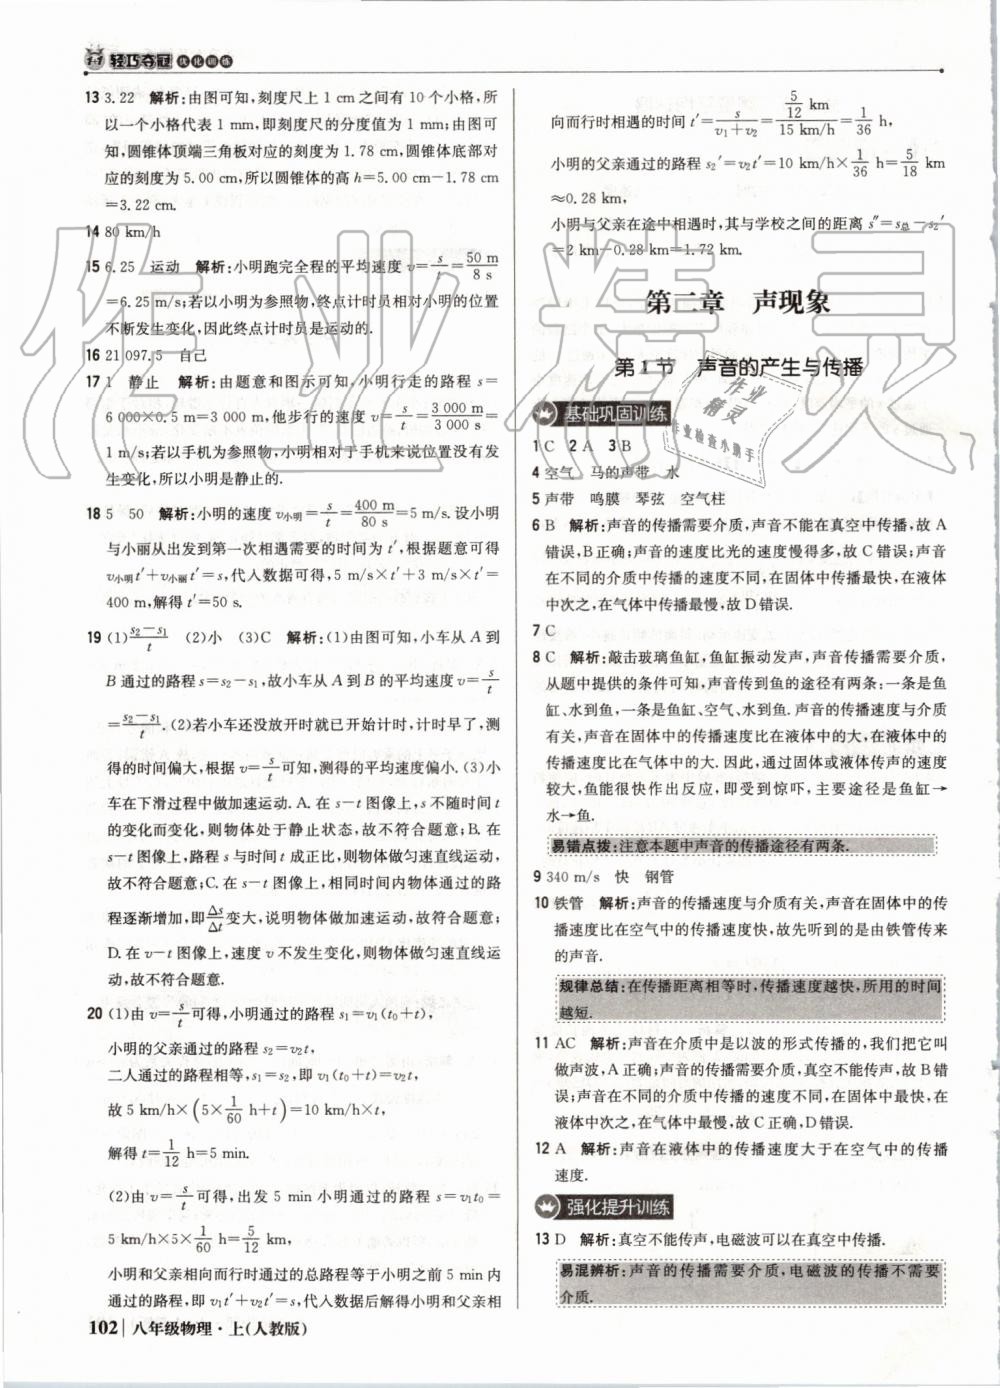 1+1 轻巧夺冠 优化训练
13 3.22 解析:由图可知,刻度尺上 1 cm之间有 10 个小格,所
以一个小格代表 1 mm,即刻度尺的分度值为 1 mm;由图可
知,圆锥体顶端三角板对应的刻度为 1.78 cm,圆锥体底部对
应的刻度为 5.00 cm,所以圆锥体的高 h=5.00 cm-1.78 cm
=3.22 cm.
14 80 km/h
15 6.25 运动 解析:小明跑完全程的平均速度 v=s/t=50 m/8 s
=6.25 m/s;若以小明为参照物,终点计时员相对小明的位置
不断发生变化,因此终点计时员是运动的.
16 21 097.5 自己
17 1 静止 解析:由题意和图示可知,小明行走的路程 s=
6 000×0.5 m=3 000 m,他步行的速度 v=s/t=3 000 m/3 000 s=
1 m/s;若以手机为参照物,小明相对于手机来说位置没有发
生变化,所以小明是静止的.
18 5 50 解析:小明的速度 v小明=s/t=400 m/80 s=5 m/s. 设小明
与小丽从出发到第一次相遇需要的时间为 t′,根据题意可得
v小明t′+v小丽t′=s,代入数据可得,5 m/s×t′+3 m/s×t′=
400 m,解得 t′=50 s.
19 (1)(s2-s1)/t (2)小 (3)C 解析:(1)由图可知,小车从 A 到
B 通过的路程 s=s2-s1,故小车从 A 到 B 的平均速度 v=s/t
=(s2-s1)/t.(2)若小车还没放开时就已开始计时,计时早了,测
得的时间偏大,根据 v=s/t可知,测得的平均速度偏小.(3)小
车在下滑过程中做加速运动. A. 在 s-t 图像上,s 不随时间 t
的变化而变化,则物体处于静止状态,故不符合题意;B. 在
s-t 图像上,路程 s 与时间 t 成正比,则物体做匀速直线运动,
故不符合题意;C. 在 s-t 图像上,相同时间内物体通过的路
程逐渐增加,即Δs/Δt变大,说明物体做加速运动,故符合题意;
D. 在 v-t 图像上,速度 v 不发生变化,则物体做匀速直线运
动,故不符合题意.
20 (1)由 v=s/t可得,小明通过的路程 s1=v1(t0+t),
小明的父亲通过的路程 s2=v2t,
二人通过的路程相等,s1=s2,即 v1(t0+t)=v2t,
故 5 km/h×(5×1/60 h+t)=10 km/h×t,
解得 t=1/12 h=5 min.
(2)由 v=s/t可得,出发 5 min 小明通过的路程 s=v1t0=
5 km/h×5×1/60 h=5/12 km,
小明和父亲相向而行时通过的总路程等于小明之前 5 min
通过的路程,即 v1t′+v2t′=s,代入数据后解得小明和父亲相
102 八年级物理·上(人教版)
向而行时相遇的时间 t′=s/(v1+v2)=(5/12 km)/(15 km/h)=1/36 h,
小明的父亲通过的路程 s2′=v2t′=10 km/h×1/36 h=5/18 km
≈0.28 km,
小明与父亲在途中相遇时,其与学校之间的距离 s″=s总-s2′
=2 km-0.28 km=1.72 km.
第二章 声现象
第 1 节 声音的产生与传播
基础巩固训练
1 C 2 A 3 B
4 空气 马的声带 水
5 声带 鸣膜 琴弦 空气柱
6 B 解析:声音的传播需要介质,声音不能在真空中传播,故 A
错误,B 正确;声音的速度比光的速度慢得多,故 C 错误;声音
在不同的介质中传播的速度不同,在固体中传播最快,在液体
中次之,在气体中传播最慢,故 D 错误.
7 C
8 C 解析:敲击玻璃鱼缸,鱼缸振动发声,声音传播需要介质,
从题中提供的条件可知,声音传到鱼的途径有两条:一条是鱼
缸、水到鱼,一条是鱼缸、空气、水到鱼. 声音的传播速度与介质
有关,声音在固体中的传播速度比在液体中的大,在液体中的
传播速度比在气体中的大. 因此,通过固体或液体传声的速度
较大,鱼能很快作出反应,即受到惊吓,主要途径是鱼缸→
水→鱼.
易错点拨:注意本题中声音的传播途径有两条.
9 340 m/s 快 钢管
10 铁管 解析:声音的传播速度与介质有关,声音在固体中的传
播速度比在空气中的传播速度快,故先听到的是由铁管传来
的声音.
规律总结:在传播距离相等时,传播速度越快,所用的时间
越短.
11 AC 解析:声音在介质中是以波的形式传播的,我们把它叫
做声波,A 正确;真空不能传声,故 B 错
误;声音在不同的介质中传播速度不同,在固体中最快,在
液体中次之,在气体中最慢,故 C 正确,D 错误.
12 A 解析:声音在液体中的传播速度大于在空气中的传播
速度.
强化提升训练
13 D 解析:真空不能传声,电磁波可以在真空中传播.
易混辨析:声音的传播需要介质,电磁波的传播不需要
介质.
作业精灵
作业
精灵
作业检查小助手